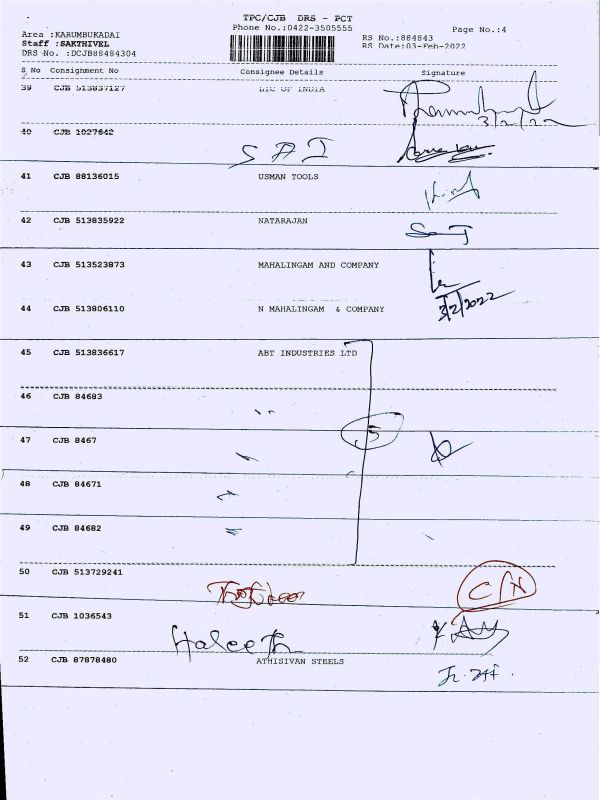 TPC/CJB DRS - PCT
Phone No.:0422-3505555
Page No.:4
Area :KARUMBUKADAI
RS No.:884843
Staff :SAKTHIVEL
RS Date:03-Feb-2022
DRS No. :DCJB88484304
S No Consignment No Consignee Details Signature
39 CJB 513837127 LIC OF INDIA
3/2/22
40 CJB 1027642
S A I
41 CJB 88136015 USMAN TOOLS
42 CJB 513835922 NATARAJAN
43 CJB 513523873 MAHALINGAM AND COMPANY
44 CJB 513806110 N MAHALINGAM & COMPANY 3/2/2022
45 CJB 513836617 ABT INDUSTRIES LTD
46 CJB 84683
5
47 CJB 8467
48 CJB 84671
49 CJB 84682
50 CJB 513729241
C/N
51 CJB 1036543
Haleeth
52 CJB 87878480 ATHISIVAN STEELS